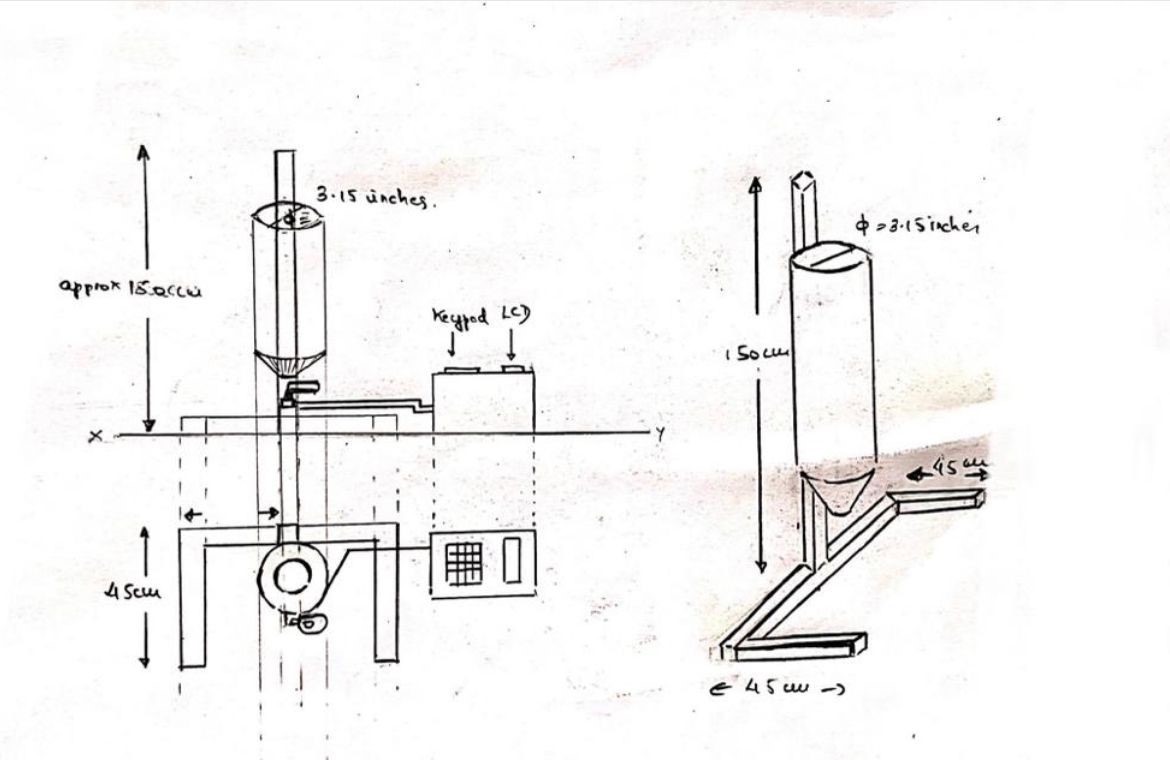 3.15 inches.
φ
approx 150cm
Keypad LCD
X
Y
45cm
φ = 3.15 inches
150cm
45cm
45cm